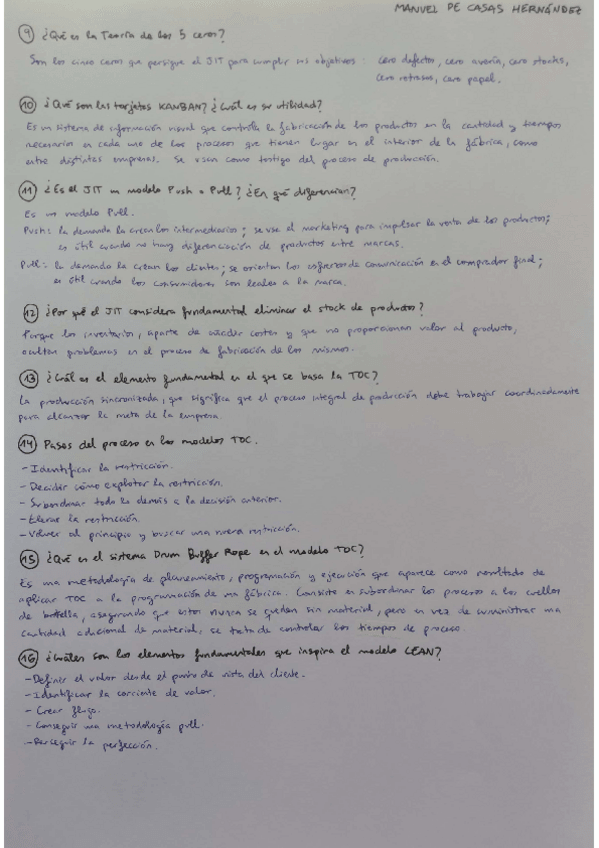 MANUEL DE CASAS HERNÁNDEZ
9 ¿Qué es la Teoría de los 5 ceros?
Son los cinco ceros que persigue el JIT para cumplir sus objetivos: cero defectos, cero avería, cero stocks,
cero retrasos, cero papel.
10 ¿Qué son las tarjetas KANBAN? ¿Cuál es su utilidad?
Es un sistema de información visual que controla la fabricación de los productos en la cantidad y tiempos
necesarios en cada uno de los procesos que tienen lugar en el interior de la fábrica, como
entre distintas empresas. Se usan como testigo del proceso de producción.
11 ¿Es el JIT un modelo Push o Pull? ¿En qué diferencian?
Es un modelo Pull.
Push: la demanda la crean los intermediarios; se usa el marketing para impulsar la venta de los productos;
es útil cuando no hay diferenciación de productos entre marcas.
Pull: la demanda la crean los clientes; se orientan los esfuerzos de comunicación en el comprador final;
es útil cuando los consumidores son leales a la marca.
12 ¿Por qué el JIT considera fundamental eliminar el stock de productos?
Porque los inventarios, aparte de añadir costes y que no proporcionan valor al producto,
ocultan problemas en el proceso de fabricación de los mismos.
13 ¿Cuál es el elemento fundamental en el que se basa la TOC?
La producción sincronizada, que significa que el proceso integral de producción debe trabajar coordinadamente
para alcanzar la meta de la empresa.
14 Pasos del proceso en los modelos TOC.
- Identificar la restricción.
- Decidir cómo explotar la restricción.
- Subordinar todo lo demás a la decisión anterior.
- Elevar la restricción.
- Volver al principio y buscar una nueva restricción.
15 ¿Qué es el sistema Drum Buffer Rope en el modelo TOC?
Es una metodología de planeamiento, programación y ejecución que aparece como resultado de
aplicar TOC a la programación de una fábrica. Consiste en subordinar los procesos a los cuellos
de botella, asegurando que estos nunca se quedan sin material, pero en vez de suministrar una
cantidad adicional de material, se trata de controlar los tiempos de proceso.
16 ¿Cuáles son los elementos fundamentales que inspira el modelo LEAN?
- Definir el valor desde el punto de vista del cliente.
- Identificar la corriente de valor.
- Crear flujo.
- Conseguir una metodología pull.
- Perseguir la perfección.